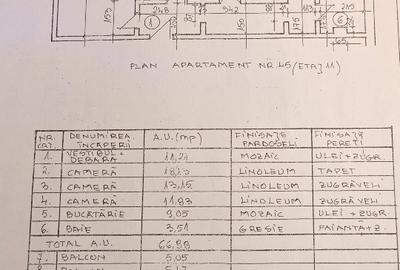 248
1
542
6
215
65
PLAN APARTAMENT NR 45/ETAJ 11)
NR. CRT. DENUMIREA ÎNCĂPERII A.U. (mp) FINISAJE PARDOSELI FINISAJE PEREȚI
1. VESTIBUL + DEBARA 11,21 MOZAIC ULEI+ZUGR.
2. CAMERĂ LINOLEUM TAPET
3. CAMERĂ 13,15 LINOLEUM ZUGRĂVELI
4. CAMERĂ 11,83 LINOLEUM ZUGRĂVELI
5. BUCĂTĂRIE 9,05 MOZAIC ULEI + ZUGR.
6. BAIE 3,51 GRESIE FAIANȚA+Z.
TOTAL A.U. 66,88
7. BALCON 5,05
BALCON